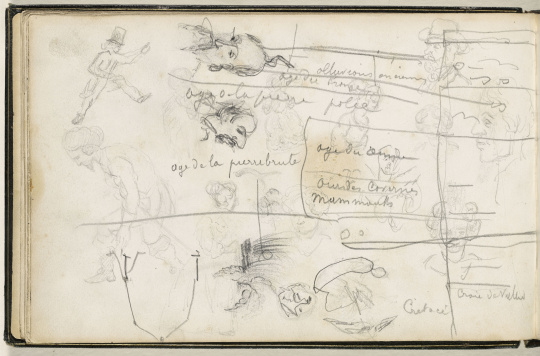 alluvions anciens
age du
age de la pierre polie
age de la pierre brute
age du
Ours des Cavernes
Mammouth
Crétacé
Craie de